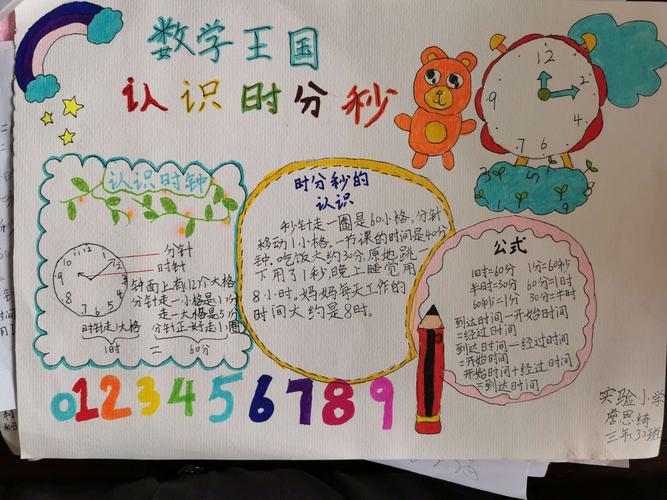 数学王国
认识时分秒
12
2
9
4
7
6
认识时钟
分针
时针
钟面上有12个大格
分针走一小格是1分
走一大格是5分
时针走1大格
分针正好走1圈
1时
=
60分
时分秒的
认识
秒针走一圈是60小格,分针
移动1小格.一节课的时间是40分
钟.吃饭大约30分.原地跳一
下用了1秒,晚上睡觉用
8小时。妈妈每天工作的
时间大约是8时。
公式
1时=60分 1分=60秒
半时=30分 60分=1时
60秒=1分 30分=半时
到达时间-开始时间
=经过时间
到达时间-经过时间
=开始时间
开始时间+经过时间
=到达时间
0123456789
实验小学
思绮
三年32班